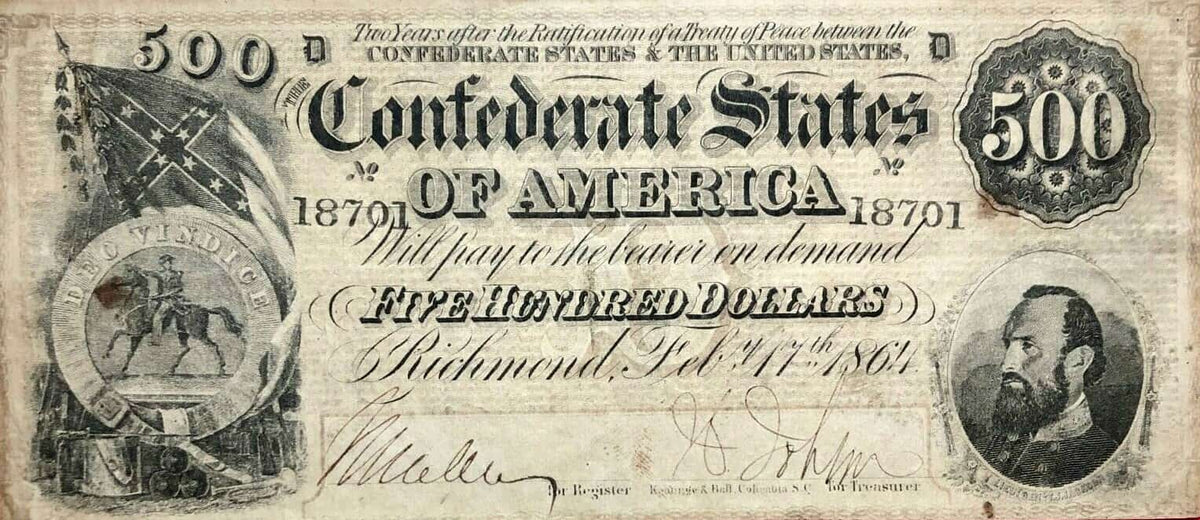 500 D Two Years after the Ratification of a Treaty of Peace between the D
CONFEDERATE STATES & THE UNITED STATES,
THE
Confederate States
500
No No
OF AMERICA
18701 18701
Will pay to the bearer on demand
DEO VINDICE
FIVE HUNDRED DOLLARS
Richmond, Feby. 17th 1864
for Register Keatinge & Ball, Columbia S.C. for Treasurer